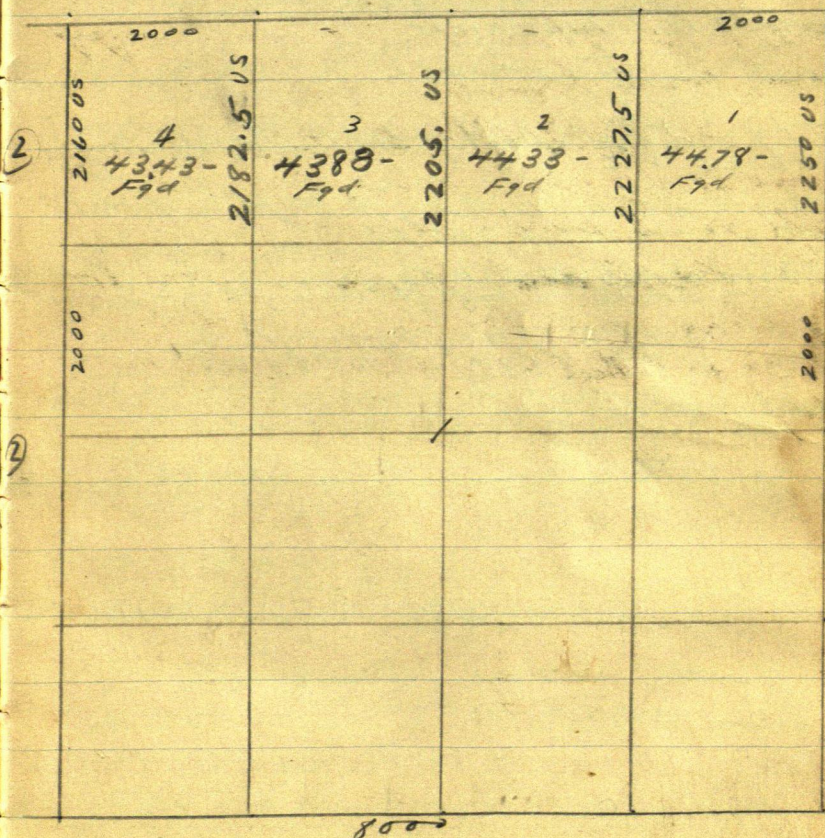 2000 - - 2000
2160 US
4
4343-
Fgd
2182.5 US
3
4388-
Fgd
2205. US
2
4433-
Fgd
2227.5 US
1
44.78-
Fgd
2250 US
2
2000
2000
2
8000